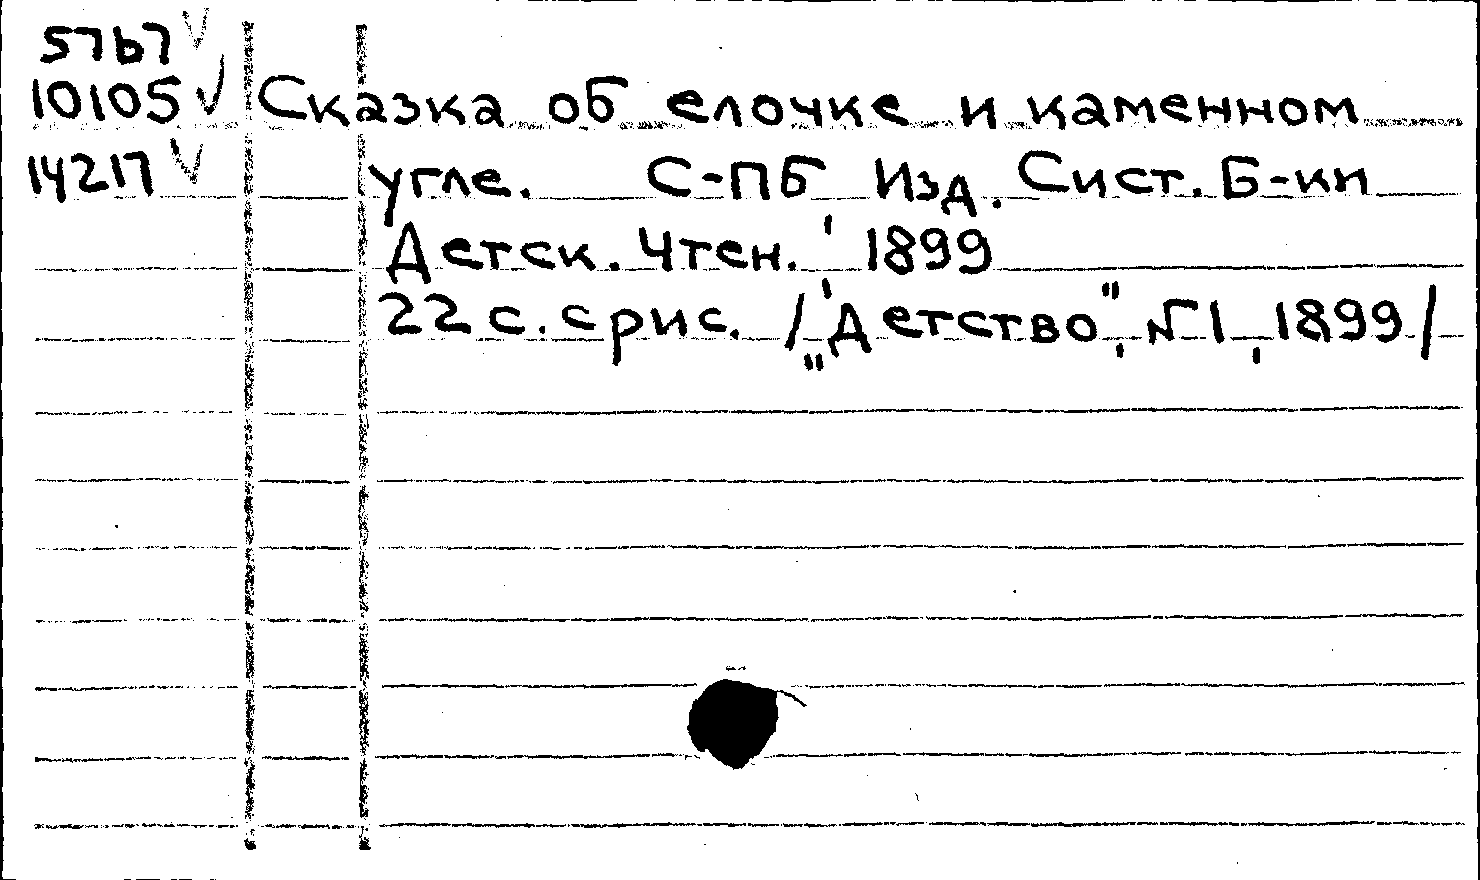 5767 V
10105 V Сказка об елочке и каменном
14217 V угле. С-ПБ Изд. Сист. Б-ки
Детск. Чтен. 1899
22 с. с рис. /„Детство", №1, 1899/